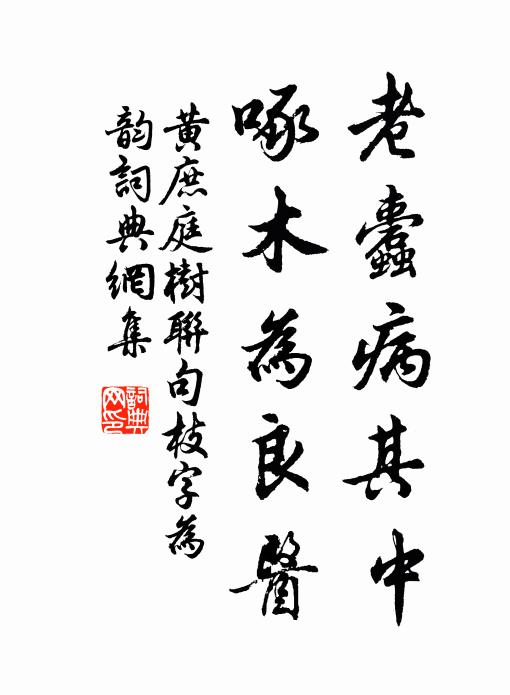 老蠹病其中
啄木為良醫
黃庶庭樹聯句枝字為
韵詞典網集
詞典
网印